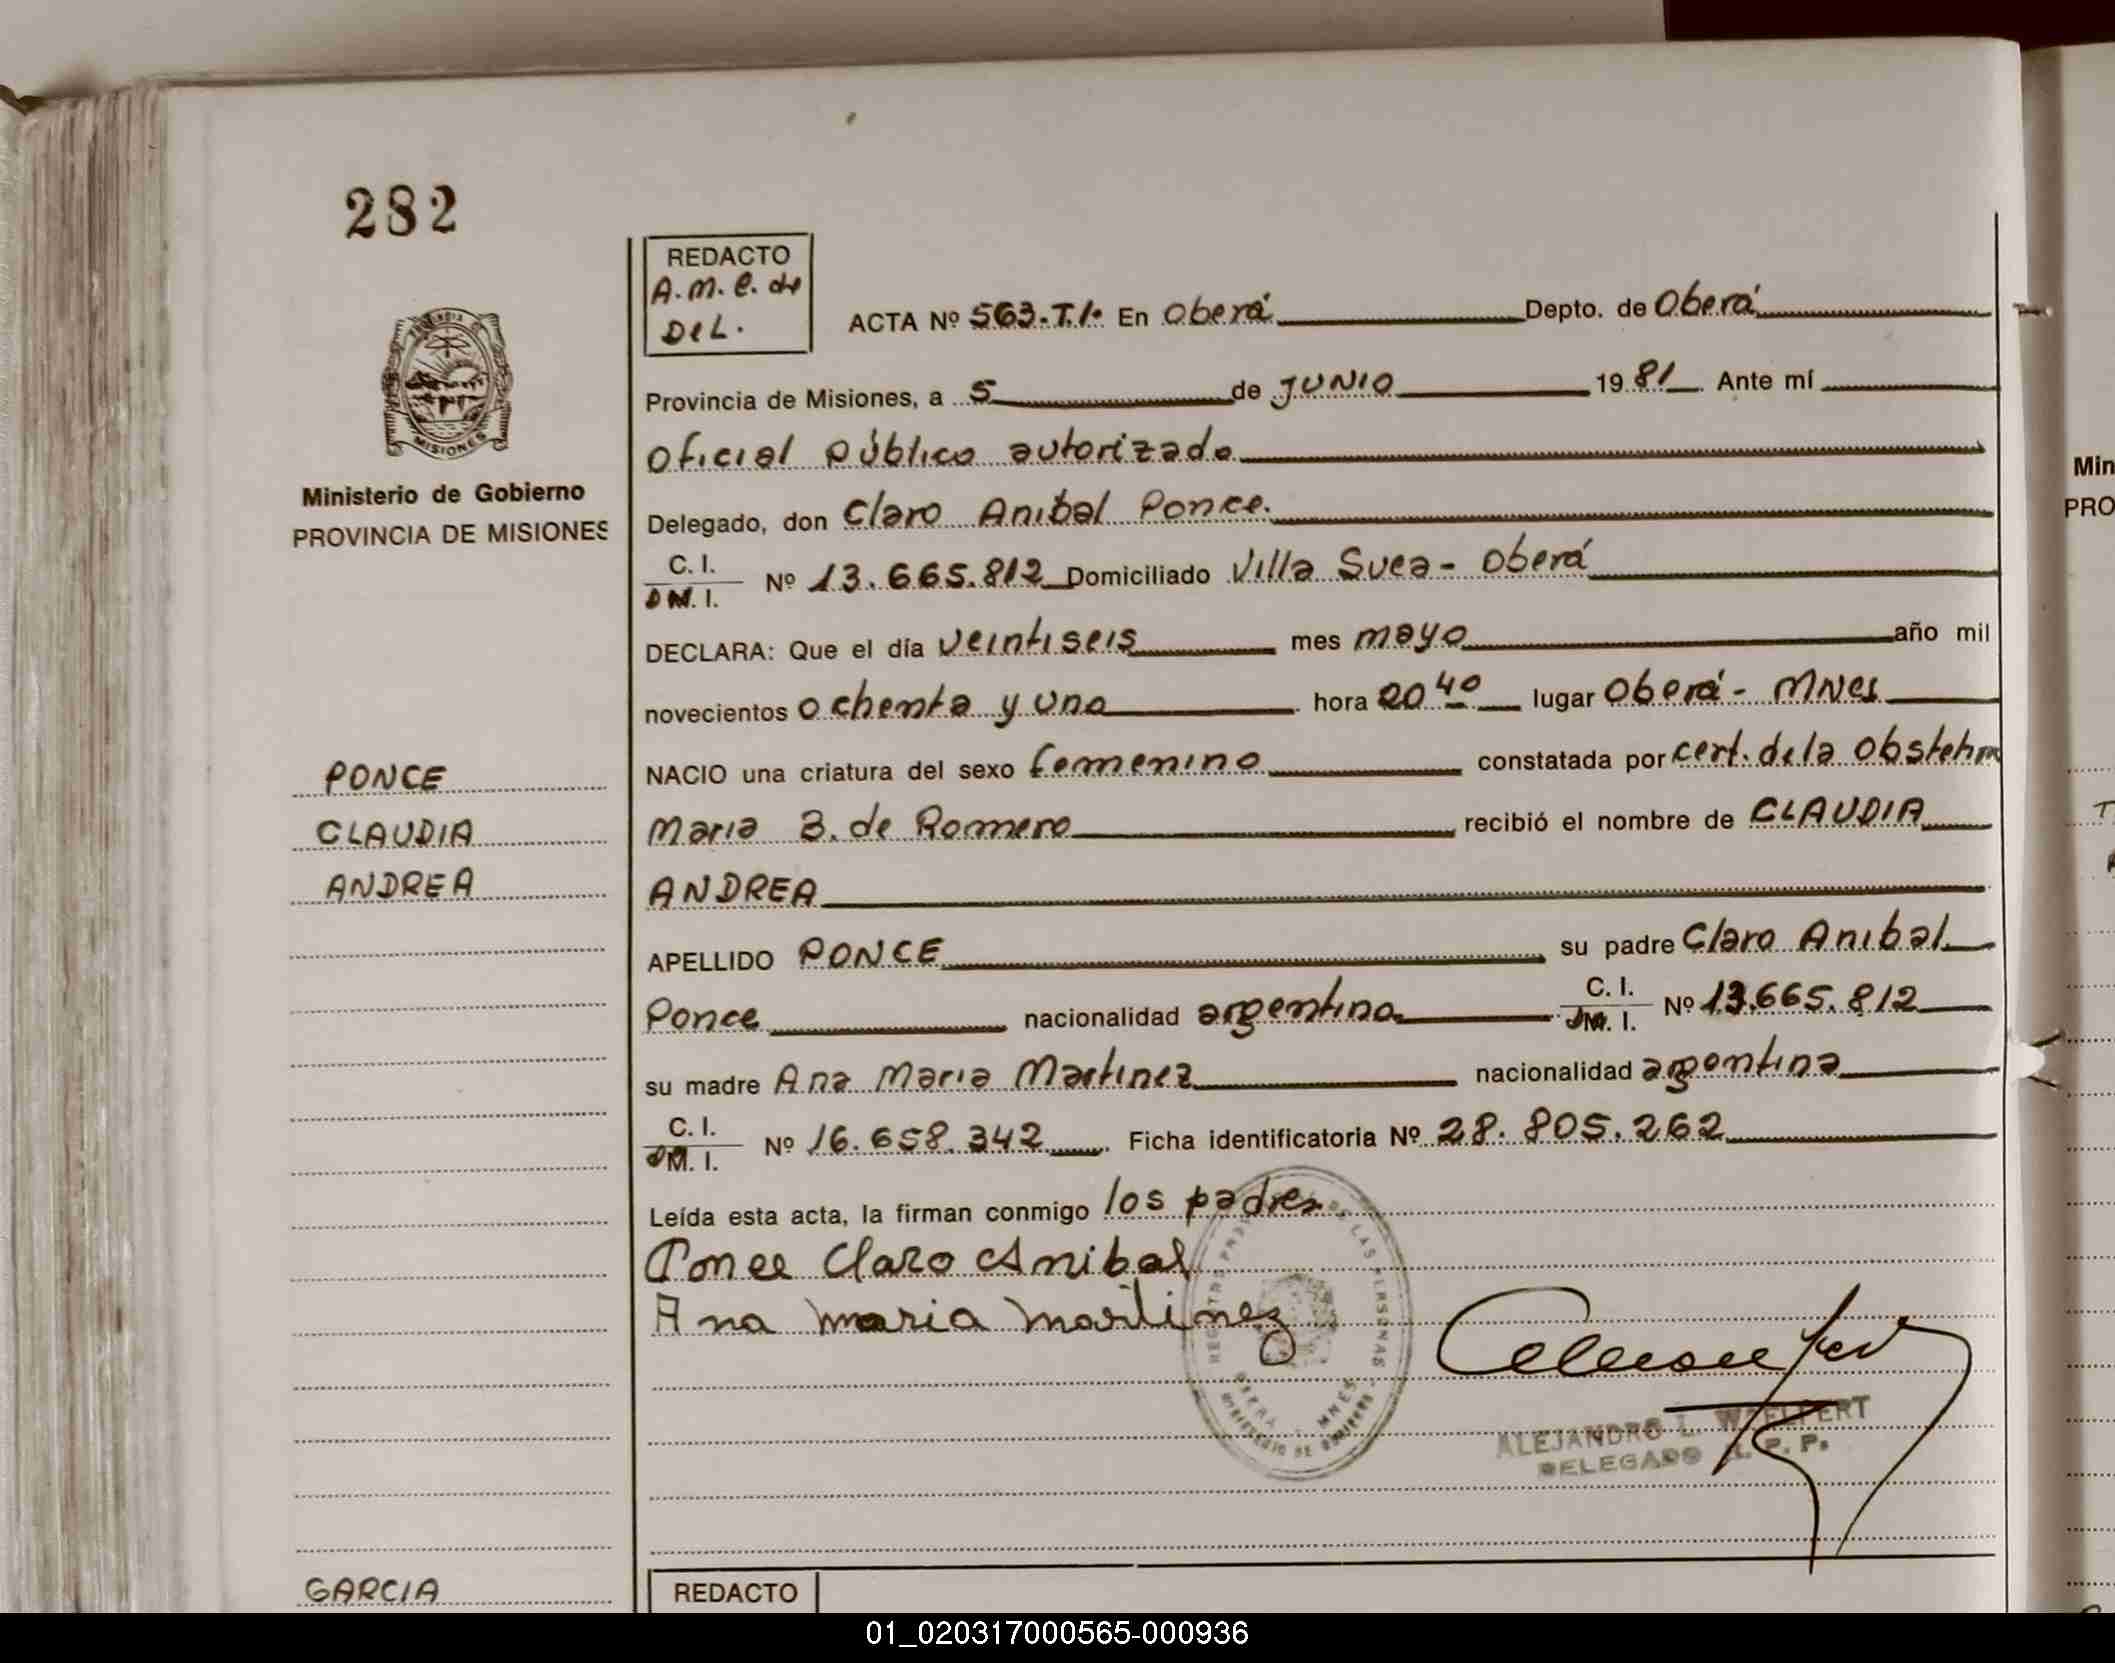 282
REDACTO
A.M.C. de
DEL.
ACTA Nº 563.T.I. En Oberá Depto. de Oberá
Provincia de Misiones, a 5 de JUNIO 1981 Ante mí
Oficial Público autorizado
Delegado, don Claro Anibal Ponce.
C. I.
D M. I. Nº 13.665.812 Domiciliado Villa Svea - Oberá
DECLARA: Que el día veintiseis mes mayo año mil
novecientos ochenta y uno hora 20 40 lugar Oberá - MNes
NACIO una criatura del sexo femenino constatada por cert. de la
Maria B. de Romero recibió el nombre de CLAUDIA
ANDREA
APELLIDO PONCE su padre Claro Anibal
Ponce nacionalidad argentino C. I. Nº 13.665.812
D M. I.
su madre Ana Maria Martinez nacionalidad argentina
C. I.
D M. I. Nº 16.658.342 Ficha identificatoria Nº 28.805.262
Leída esta acta, la firman conmigo los padres
Ponce Claro Anibal
Ana maria martinez
DE LAS PERSONAS
ALEJANDRO L.
DELEGADO R. P. P.
REDACTO
PROVINCIA DE
MISIONES
Ministerio de Gobierno
PROVINCIA DE MISIONES
PONCE
CLAUDIA
ANDREA
GARCIA
Min
PRO
01_020317000565-000936